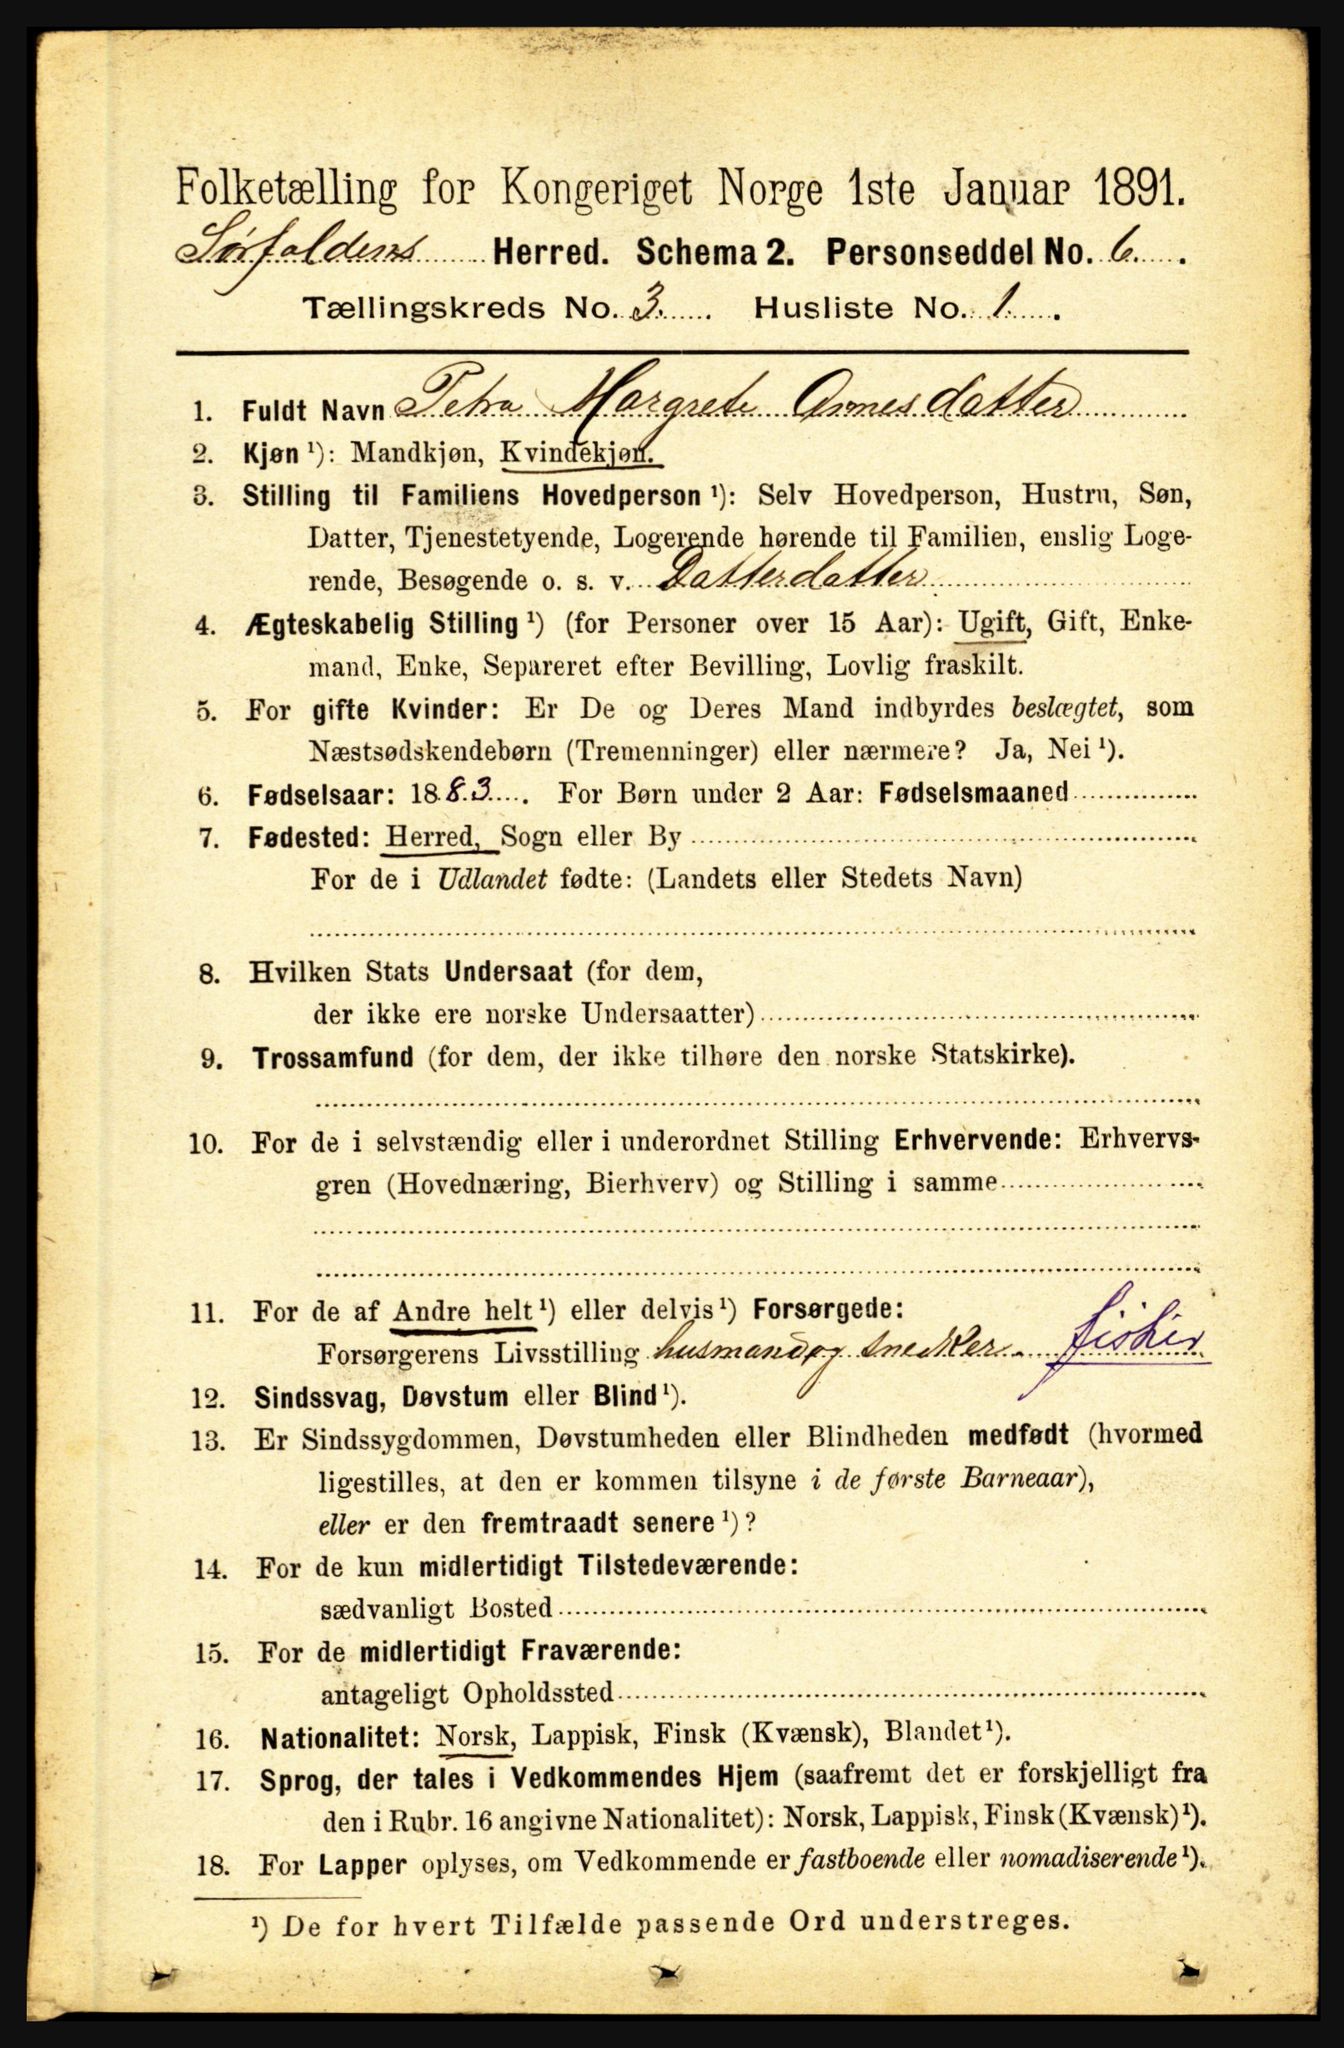 Folketælling for Kongeriget Norge 1ste Januar 1891.
Sørfoldens Herred. Schema 2. Personseddel No. 6.
Tællingskreds No. 3. Husliste No. 1.
1. Fuldt Navn Petra Margrete Arnesdatter
2. Kjøn ¹): Mandkjøn, Kvindekjøn.
3. Stilling til Familiens Hovedperson ¹): Selv Hovedperson, Hustru, Søn,
Datter, Tjenestetyende, Logerende hørende til Familien, enslig Loge-
rende, Besøgende o. s. v. Datterdatter
4. Ægteskabelig Stilling ¹) (for Personer over 15 Aar): Ugift, Gift, Enke-
mand, Enke, Separeret efter Bevilling, Lovlig fraskilt.
5. For gifte Kvinder: Er De og Deres Mand indbyrdes beslægtet, som
Næstsødskendebørn (Tremenninger) eller nærmere? Ja, Nei ¹).
6. Fødselsaar: 1883. For Børn under 2 Aar: Fødselsmaaned
7. Fødested: Herred, Sogn eller By
For de i Udlandet fødte: (Landets eller Stedets Navn)
8. Hvilken Stats Undersaat (for dem,
der ikke ere norske Undersaatter)
9. Trossamfund (for dem, der ikke tilhøre den norske Statskirke).
10. For de i selvstændig eller i underordnet Stilling Erhvervende: Erhvervs-
gren (Hovednæring, Bierhverv) og Stilling i samme
11. For de af Andre helt ¹) eller delvis ¹) Forsørgede:
Forsørgerens Livsstilling husmand og snedker. fisker
12. Sindssvag, Døvstum eller Blind ¹).
13. Er Sindssygdommen, Døvstumheden eller Blindheden medfødt (hvormed
ligestilles, at den er kommen tilsyne i de første Barneaar),
eller er den fremtraadt senere ¹)?
14. For de kun midlertidigt Tilstedeværende:
sædvanligt Bosted
15. For de midlertidigt Fraværende:
antageligt Opholdssted
16. Nationalitet: Norsk, Lappisk, Finsk (Kvænsk), Blandet ¹).
17. Sprog, der tales i Vedkommendes Hjem (saafremt det er forskjelligt fra
den i Rubr. 16 angivne Nationalitet): Norsk, Lappisk, Finsk (Kvænsk) ¹).
18. For Lapper oplyses, om Vedkommende er fastboende eller nomadiserende ¹).
¹) De for hvert Tilfælde passende Ord understreges.